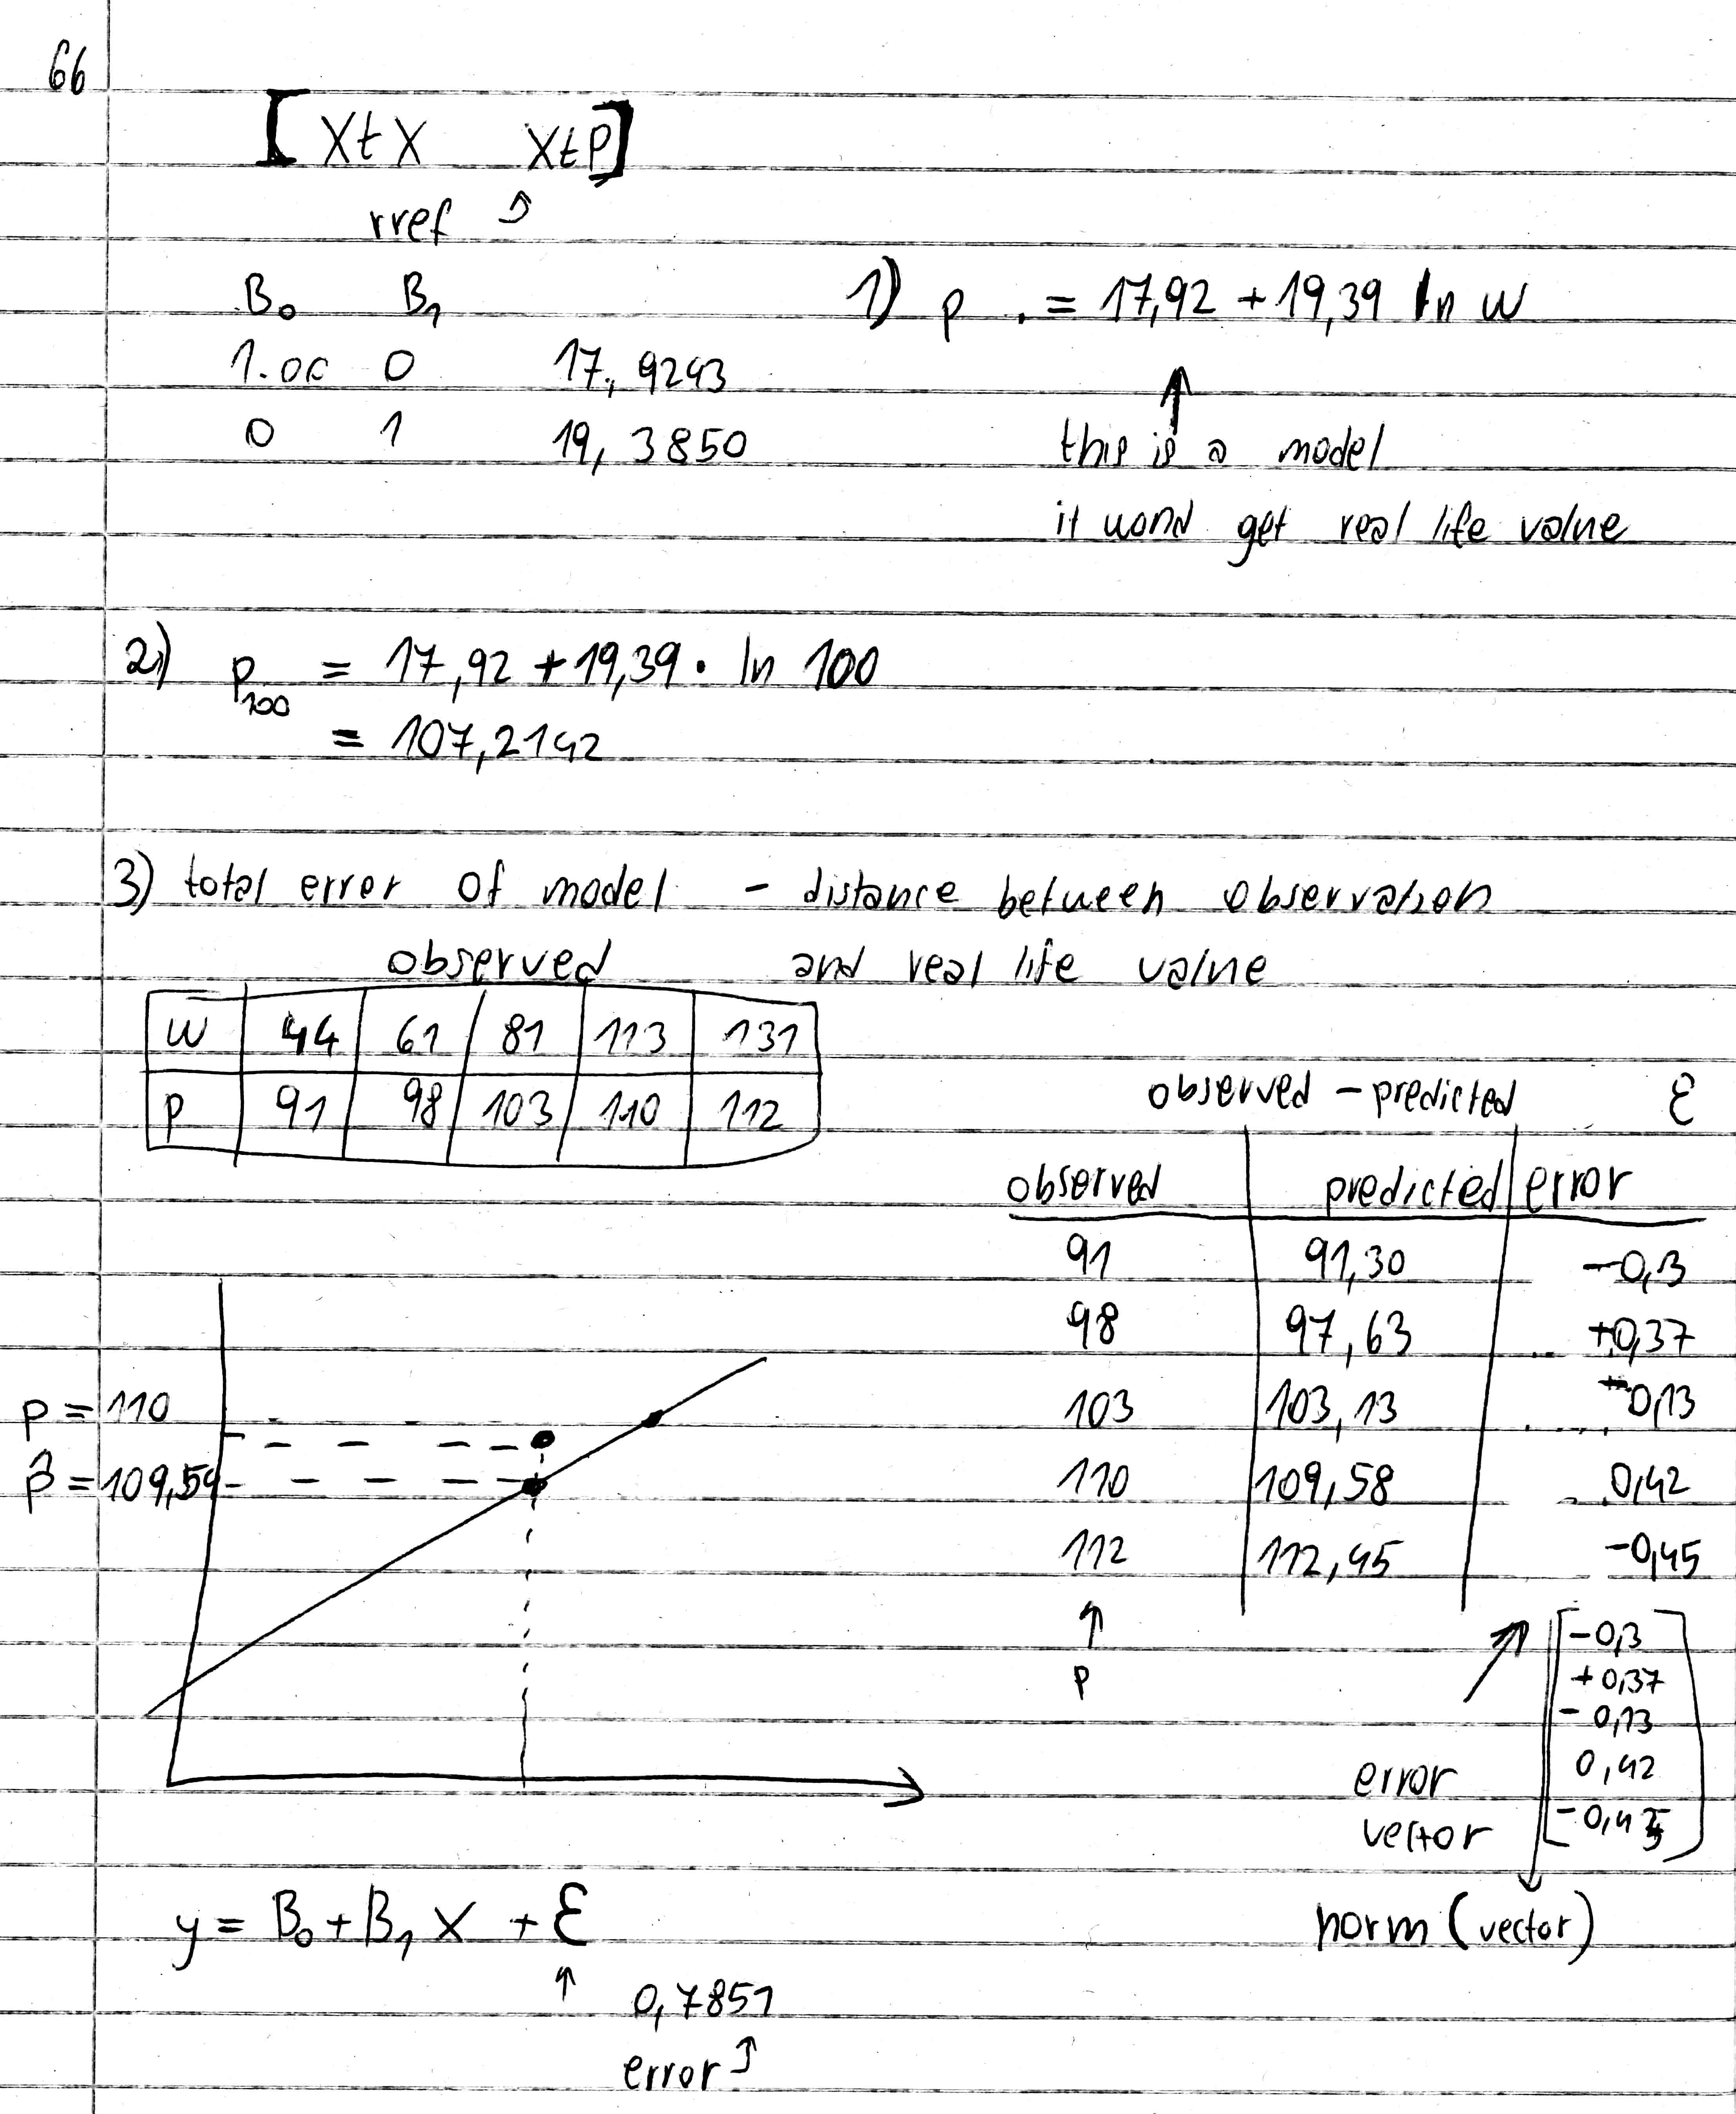 66
[ XtX XtP ]
rref ↑
B₀ B₁
1.00 0 17,9243
0 1 19,3850
1) p = 17,92 + 19,39 ln w
↑
this is a model
it wond get real life value
2) p₁₀₀ = 17,92 + 19,39 · ln 100
= 107,2142
3) total error of model - distance between observation
and real life value
observed
w 44 61 81 113 131
p 91 98 103 110 112
observed - predicted ε
observed predicted error
91 91,30 -0,3
98 97,63 +0,37
103 103,13 -0,13
110 109,58 0,42
112 112,45 -0,45
↑
p
p = 110
p̂ = 109,59
error
vector
[ -0,3
+0,37
-0,13
0,42
-0,45 ]
norm (vector)
y = B₀ + B₁ X + ε
↑ 0,7851
error ↑